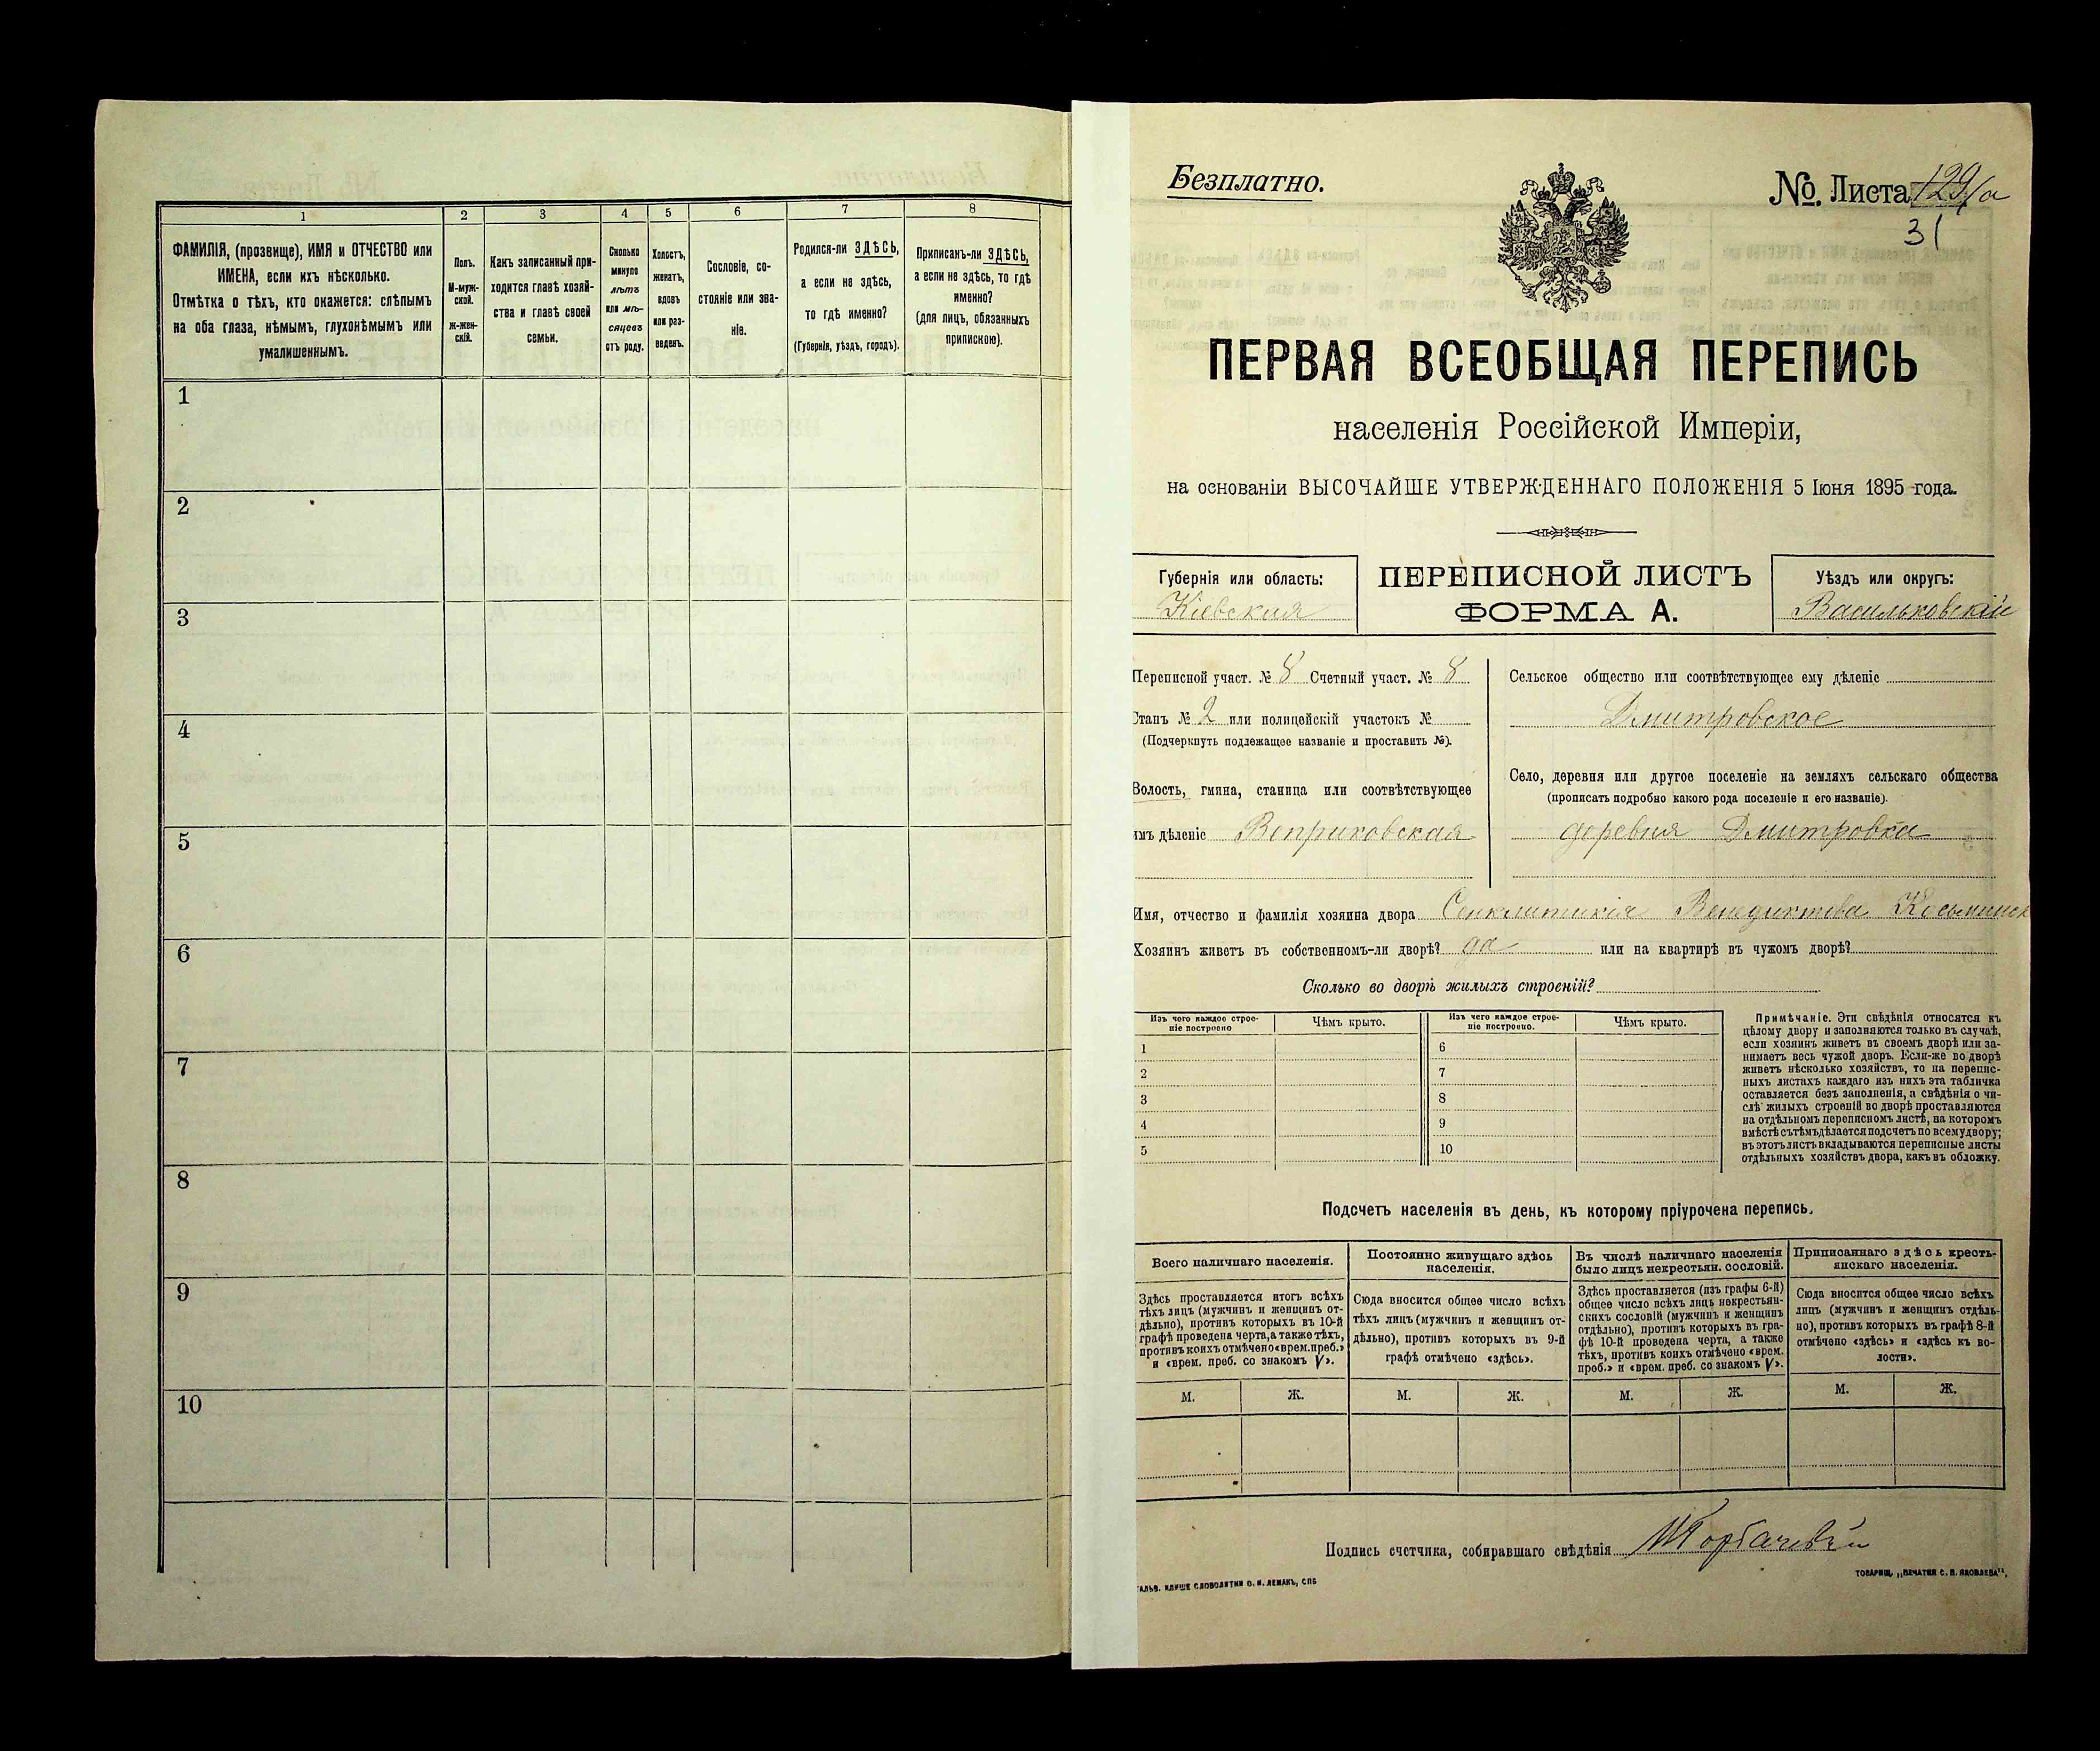 1 2 3 4 5 6 7 8
ФАМИЛІЯ, (прозвище), ИМЯ и ОТЧЕСТВО или
ИМЕНА, если ихъ нѣсколько.
Отмѣтка о тѣхъ, кто окажется: слѣпымъ
на оба глаза, нѣмымъ, глухонѣмымъ или
умалишеннымъ.
Полъ.
М-муж-
ской.
Ж-жен-
скій.
Какъ записанный при-
ходится главѣ хозяй-
ства и главѣ своей
семьи.
Сколько
минуло
лѣтъ
или мѣ-
сяцевъ
отъ роду.
Холостъ,
женатъ,
вдовъ
или раз-
веденъ.
Сословіе, со-
стояніе или зва-
ніе.
Родился-ли ЗДѢСЬ,
а если не здѣсь,
то гдѣ именно?
(Губернія, уѣздъ, городъ).
Приписанъ-ли ЗДѢСЬ,
а если не здѣсь, то гдѣ
именно?
(для лицъ, обязанныхъ
припискою).
1
2
3
4
5
6
7
8
9
10
Безплатно.
№. Листа 129/а
31
ПЕРВАЯ ВСЕОБЩАЯ ПЕРЕПИСЬ
населенія Россійской Имперіи,
на основаніи ВЫСОЧАЙШЕ УТВЕРЖДЕННАГО ПОЛОЖЕНІЯ 5 Іюня 1895 года.
Губернія или область:
Кіевская
ПЕРЕПИСНОЙ ЛИСТЪ
ФОРМА А.
Уѣздъ или округъ:
Васильковскій
Переписной участ. № 8 Счетный участ. № 8
Станъ № 2 или полицейскій участокъ №
(Подчеркнуть подлежащее названіе и проставить №).
Волость, гмина, станица или соотвѣтствующее
имъ дѣленіе Веприковская
Сельское общество или соотвѣтствующее ему дѣленіе
Дмитровское
Село, деревня или другое поселеніе на земляхъ сельскаго общества
(прописать подробно какого рода поселеніе и его названіе).
деревня Дмитровка
Имя, отчество и фамилія хозяина двора Синклитикія Венедиктова
Хозяинъ живетъ въ собственномъ-ли дворѣ? да или на квартирѣ въ чужомъ дворѣ?
Сколько во дворѣ жилыхъ строеній?
Изъ чего каждое строе-
ніе построено
Чѣмъ крыто.
Изъ чего каждое строе-
ніе построено.
Чѣмъ крыто.
1 6
2 7
3 8
4 9
5 10
Примѣчаніе. Эти свѣдѣнія относятся къ
цѣлому двору и заполняются только въ случаѣ,
если хозяинъ живетъ въ своемъ дворѣ или за-
нимаетъ весь чужой дворъ. Если-же во дворѣ
живетъ нѣсколько хозяйствъ, то на перепис-
ныхъ листахъ каждаго изъ нихъ эта табличка
оставляется безъ заполненія, а свѣдѣнія о чи-
слѣ жилыхъ строеній во дворѣ проставляются
на отдѣльномъ переписномъ листѣ, на которомъ
вмѣстѣ съ тѣмъ дѣлается подсчетъ по всему двору;
въ этотъ листъ вкладываются переписные листы
отдѣльныхъ хозяйствъ двора, какъ въ обложку.
Подсчетъ населенія въ день, къ которому пріурочена перепись.
Всего наличнаго населенія.
Здѣсь проставляется итогъ всѣхъ
тѣхъ лицъ (мужчинъ и женщинъ от-
дѣльно), противъ которыхъ въ 10-й
графѣ проведена черта, а также тѣхъ,
противъ коихъ отмѣчено «врем. преб.»
и «врем. преб. со знакомъ V».
Постоянно живущаго здѣсь
населенія.
Сюда вносится общее число всѣхъ
тѣхъ лицъ (мужчинъ и женщинъ от-
дѣльно), противъ которыхъ въ 9-й
графѣ отмѣчено «здѣсь».
Въ числѣ наличнаго населенія
было лицъ некрестьян. сословій.
Здѣсь проставляется (изъ графы 6-й)
общее число всѣхъ лицъ некрестьян-
скихъ сословій (мужчинъ и женщинъ
отдѣльно), противъ которыхъ въ гра-
фѣ 10-й проведена черта, а также
тѣхъ, противъ коихъ отмѣчено «врем.
преб.» и «врем. преб. со знакомъ V».
Приписаннаго здѣсь кресть-
янскаго населенія.
Сюда вносится общее число всѣхъ
лицъ (мужчинъ и женщинъ отдѣль-
но), противъ которыхъ въ графѣ 8-й
отмѣчено «здѣсь» и «здѣсь къ во-
лости».
М. Ж. М. Ж. М. Ж. М. Ж.
Подпись счетчика, собиравшаго свѣдѣнія
СЛОВОЛИТНИ О. И. ЛЕМАНЪ, СПБ
ТОВАРИЩ. „ПЕЧАТНЯ С. П. ЯКОВЛЕВА",